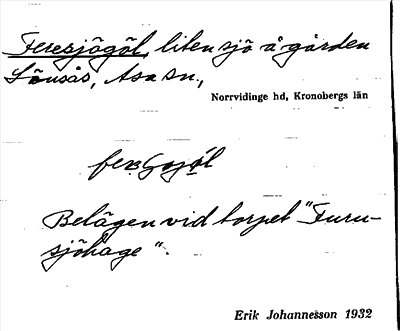 Feresjögöl, liten sjö å gården
Lönsås, Asa sn.,
Norrvidinge hd, Kronobergs län
Belägen vid torpet "Furu-
sjöhage".
Erik Johannesson 1932